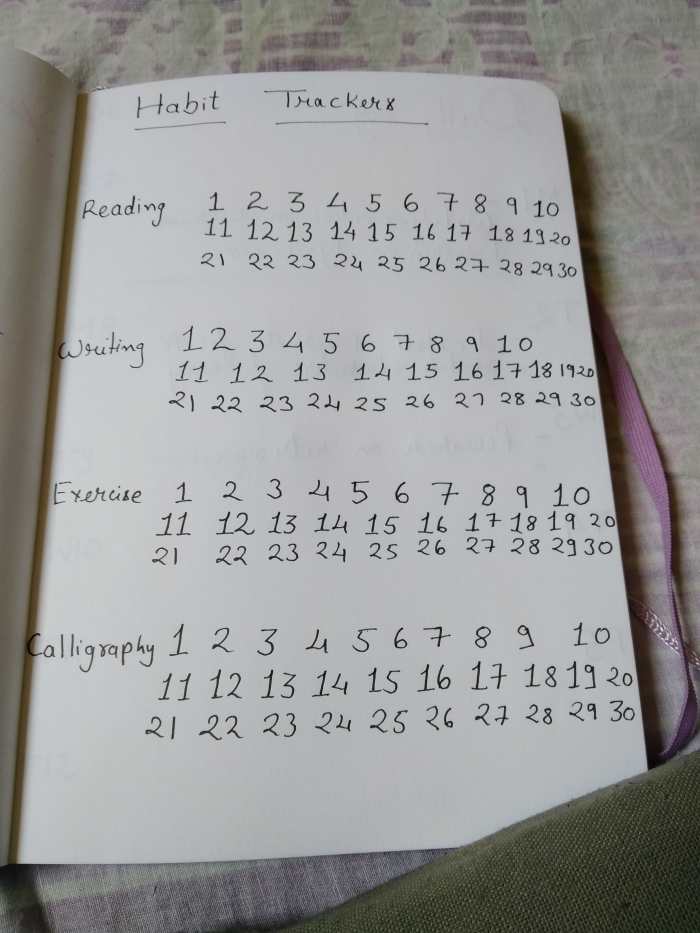 Habit Trackers
Reading 1 2 3 4 5 6 7 8 9 10
11 12 13 14 15 16 17 18 19 20
21 22 23 24 25 26 27 28 29 30
Writing 1 2 3 4 5 6 7 8 9 10
11 12 13 14 15 16 17 18 19 20
21 22 23 24 25 26 27 28 29 30
Exercise 1 2 3 4 5 6 7 8 9 10
11 12 13 14 15 16 17 18 19 20
21 22 23 24 25 26 27 28 29 30
Calligraphy 1 2 3 4 5 6 7 8 9 10
11 12 13 14 15 16 17 18 19 20
21 22 23 24 25 26 27 28 29 30